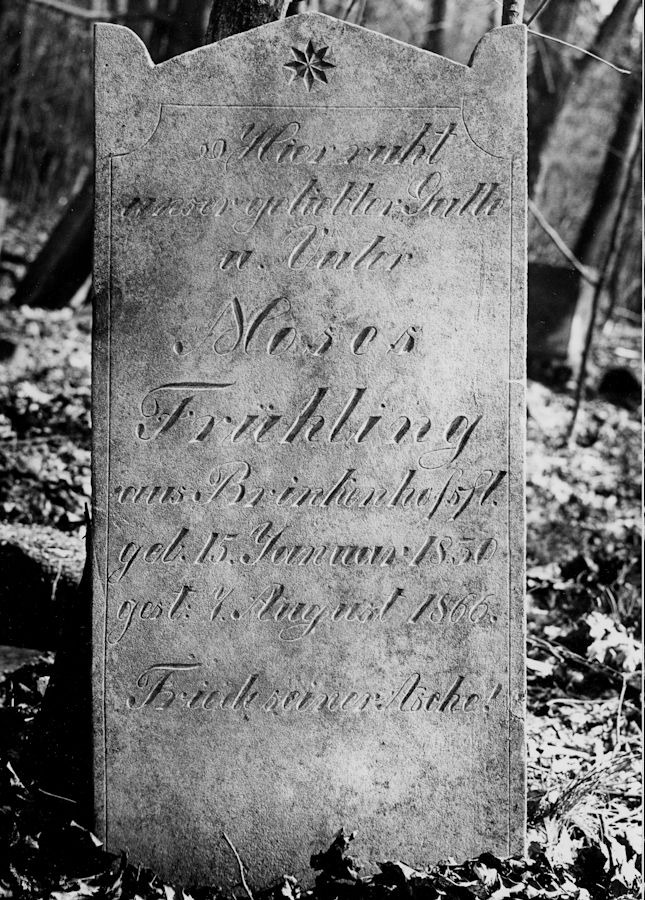 Hier ruht
unser geliebter Gatte
u. Vater
Moses
Frühling
aus Brinkenhofsfl.
geb. 15. Januar 1830
gest: 7. August 1866.
Friede seiner Asche!